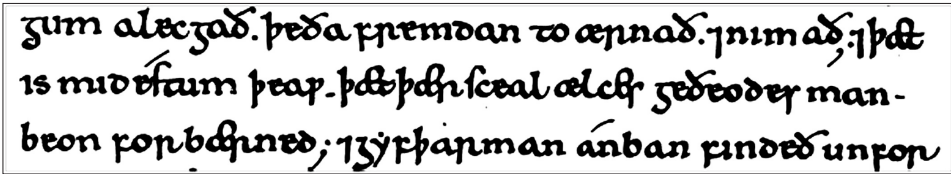 gum alecgað. þeða fremdan to ærnað. ⁊ nimað; ⁊ þæt
is mid éstum þeaƿ. þæt þær sceal ælces geðeodes man-
beon forbærned; ⁊ gẏf þar man án ban findeð unfor